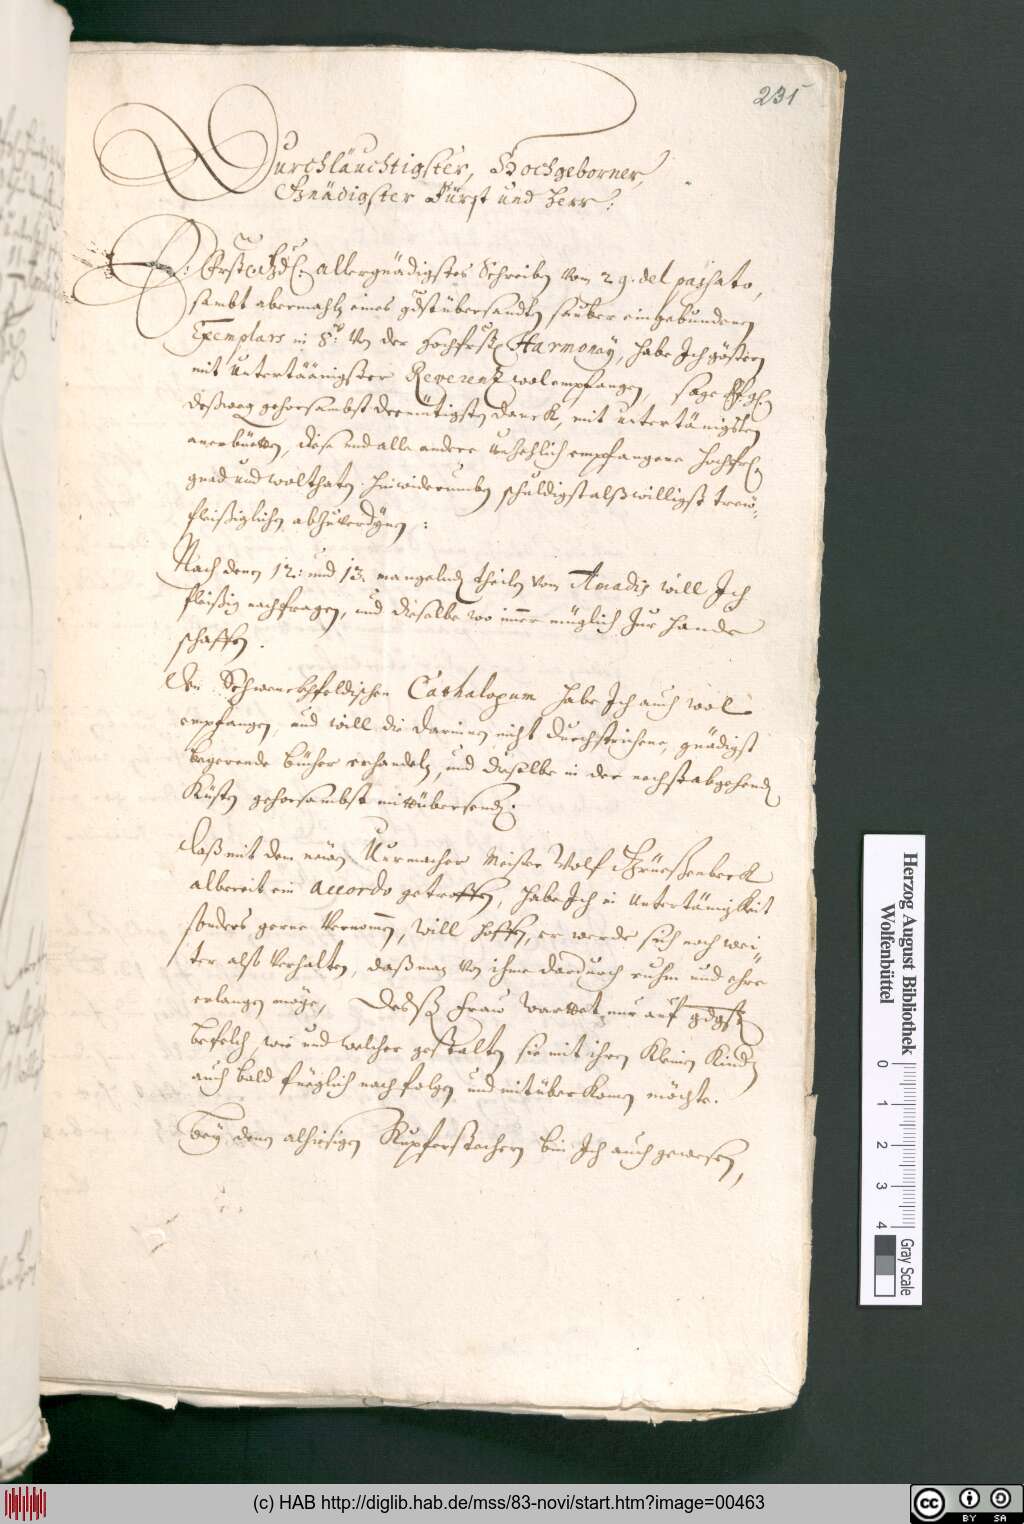 235
Durchläuchtigster, Hochgeborner,
Gnädigster Fürst und Herr:
E: Frstl. Gd: allergnädigstes Schreiben vom 29. del passato,
sambt abermahls eines gdst übersandten sauber eingebundenen
Exemplars in 8.º Von der hochfrstl. Harmonay, habe Ich gestern
mit Untertäänigster Reverentz wol empfangen, sage
deßweg gehorsambst demütigsten danck, mit untertänigsten
anerbieten, diese und alle andere Unzehlich empfangene hochfrl.
gnad und wolthaten hinwiderumben schuldigst alß willigst trew-
fleißiglichen abzuverdienen:
Nach denen 12: und 13. mangelnden theilen vom Amadis will Ich
fleißig nachfragen, und dieselbe wo immer müglich Zur hande
schaffen.
Den Schwenckhfeldischen Cathalogum habe Ich auch wol
empfangen, und will die darinnen nicht durchstrichene, gnädigst
begerende bücher erhandeln, und dieselbe in der nechst abgehenden
Küsten gehorsambst mitübersenden.
Daß mit dem neuen Uurmacher Meister Wolf
albereit ein accordo getroffen, habe Ich in Untertänigkeit
sonders gerne Vernommen, will hoffen, er werde sich noch wei-
ter also Verhalten, daß man Von ihme dardurch ruhm und ehre
erlangen möge, Deßß Fraw wartet nur auf gdgst
befelch, wie und welcher gestalten sie mit ihren Kleinen Kinden
auch bald füeglich nachfolgen und mitüberkomen möchte.
Bey denen alhiesigen Kupferstechern bin Ich auch gewesen,
Herzog August Bibliothek
Wolfenbüttel
0 1 2 3 4
Gray Scale
(c) HAB http://diglib.hab.de/mss/83-novi/start.htm?image=00463
cc BY SA